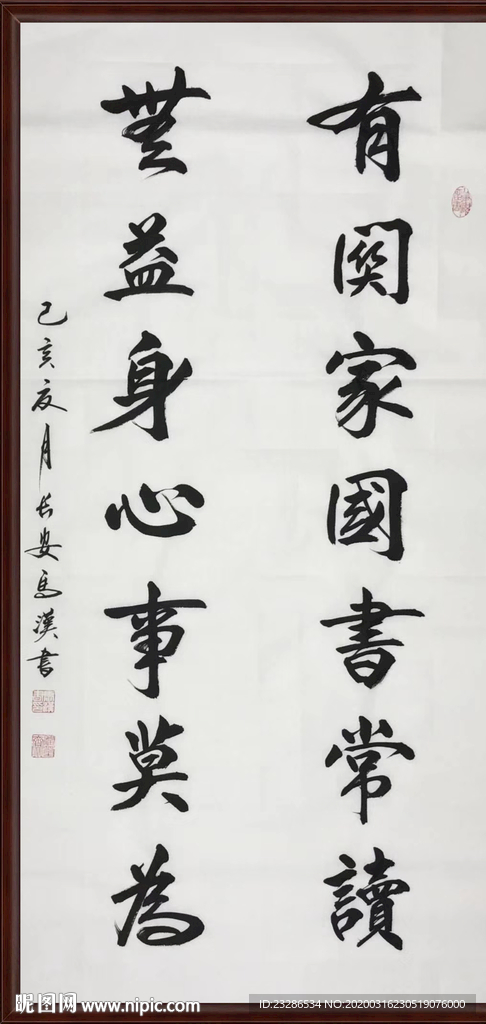 有関家國書常讀
無益身心事莫為
己亥夏月长安馬漢書
昵图网 www.nipic.com
ID:23286534 NO.20200316230519076000